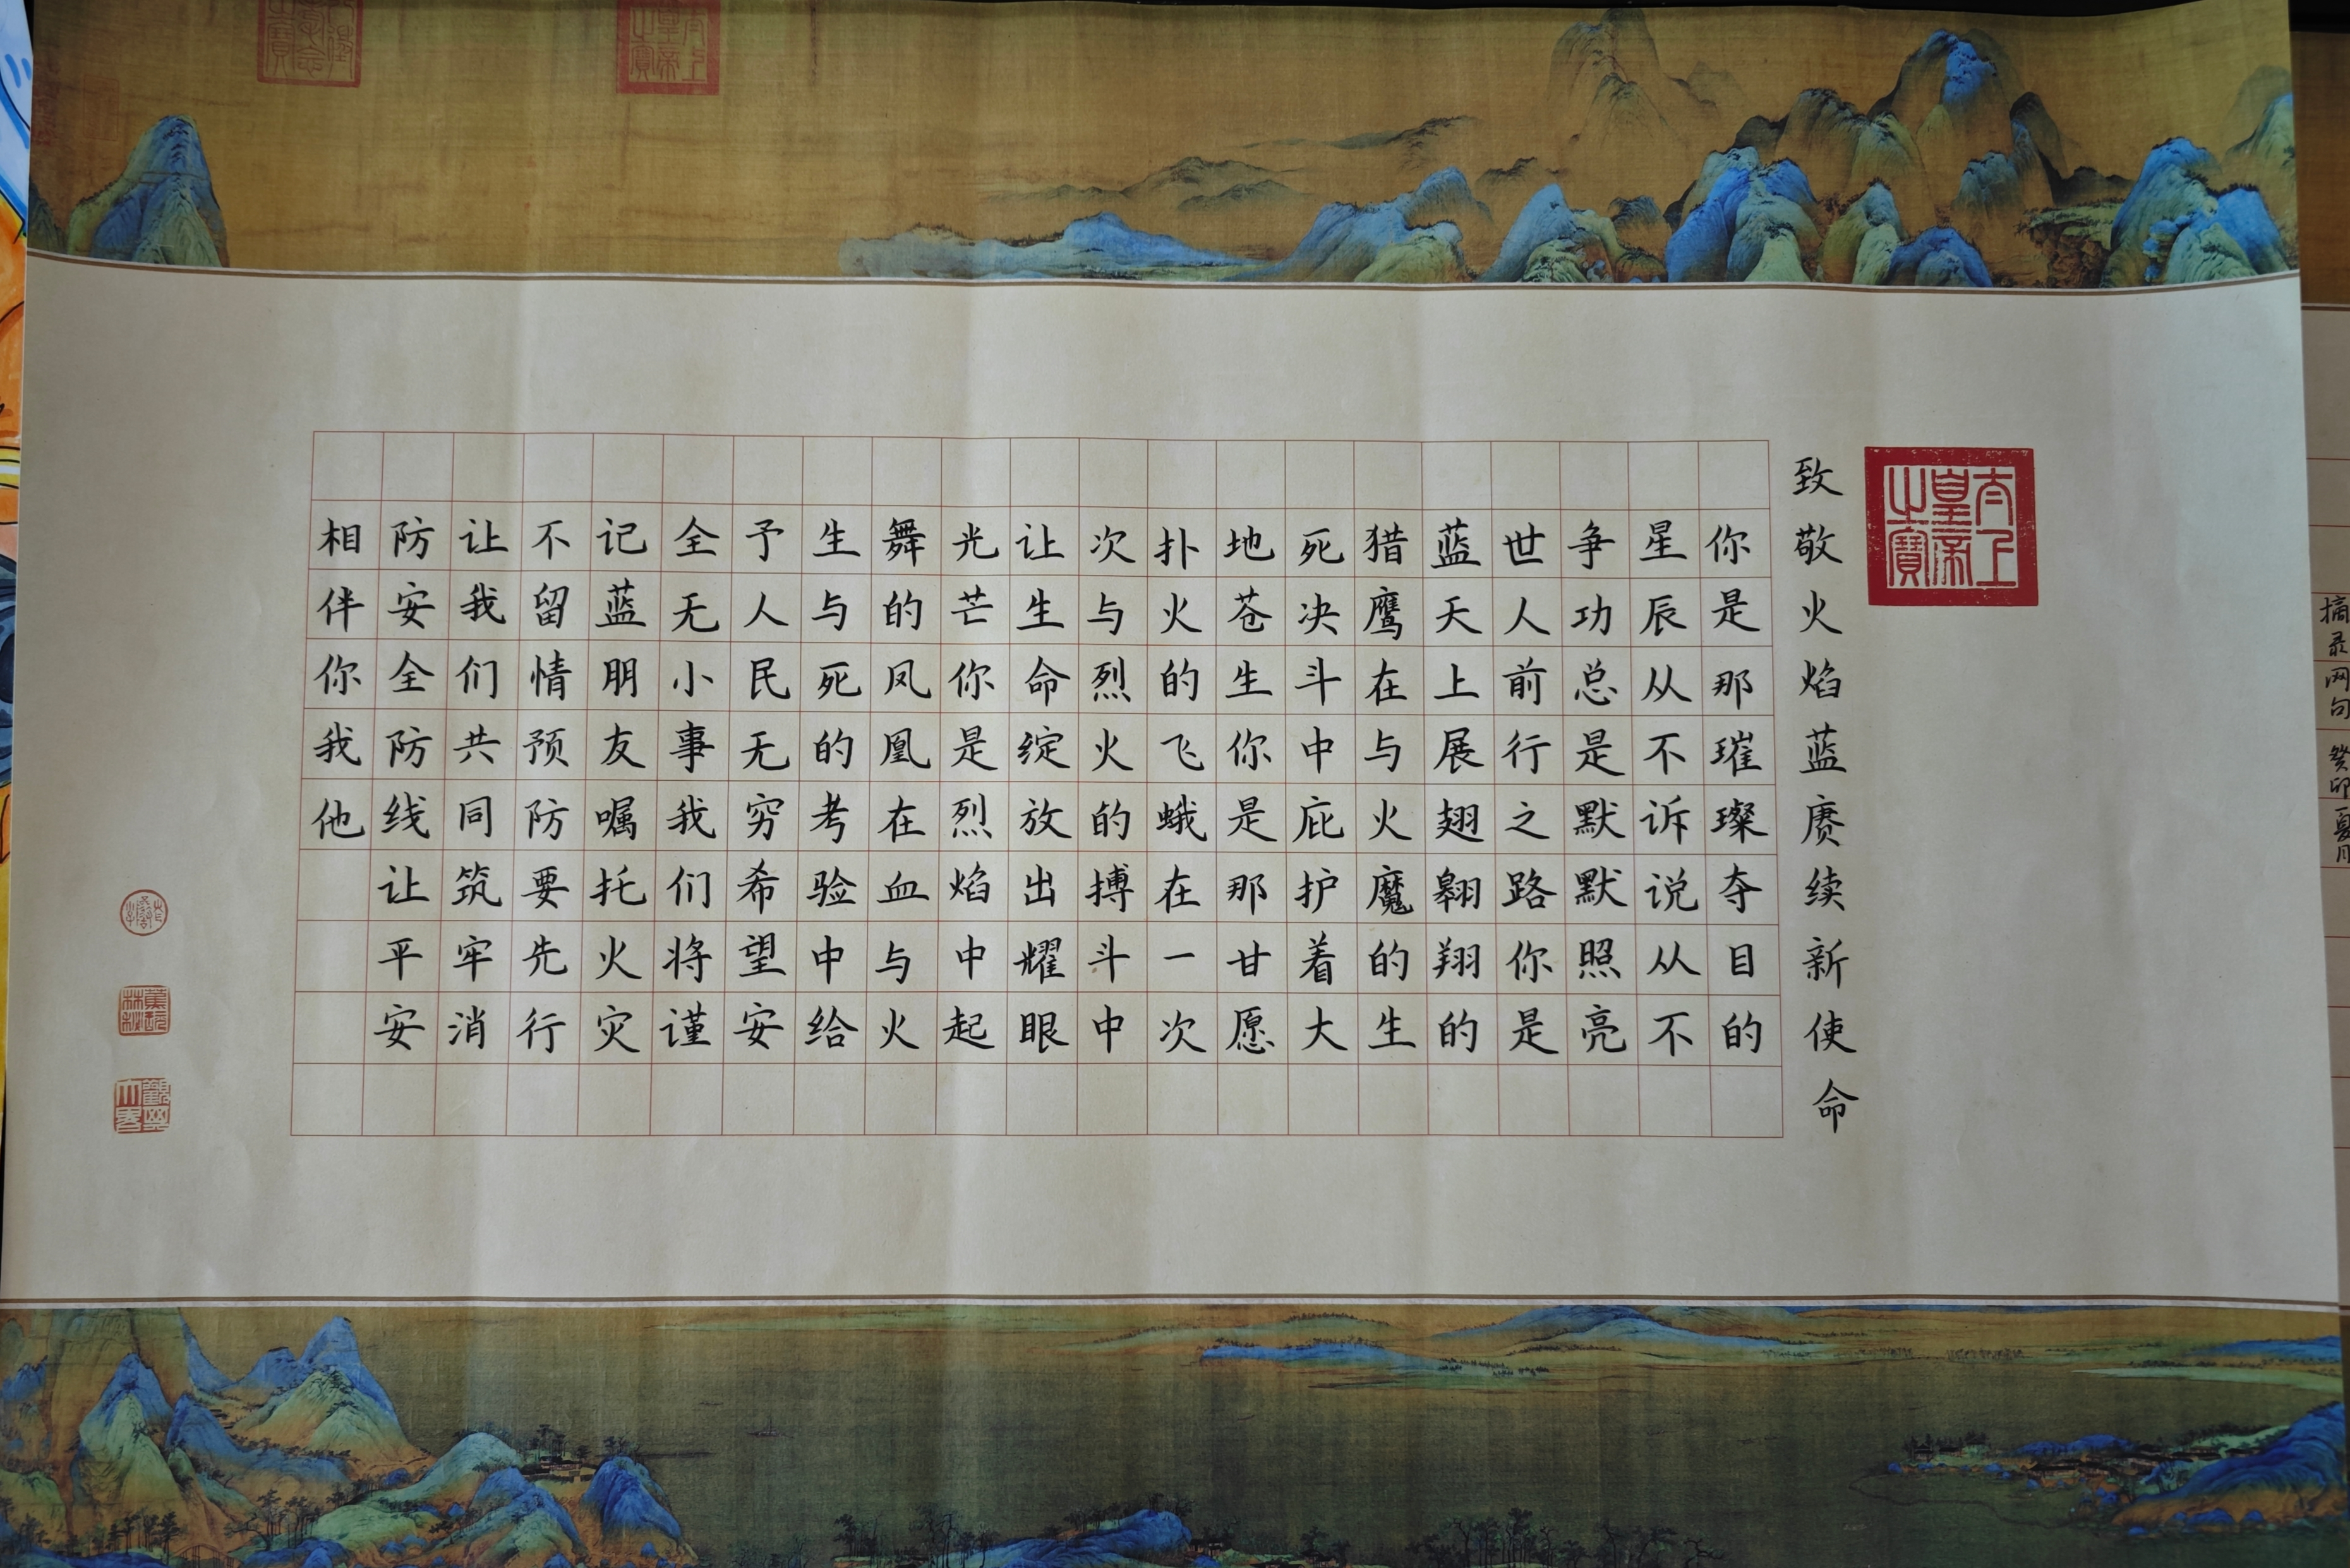 摘录网句 癸卯夏月
致敬火焰蓝赓续新使命
你是那璀璨夺目的
星辰从不诉说从不
争功总是默默照亮
世人前行之路你是
蓝天上展翅翱翔的
猎鹰在与火魔的生
死决斗中庇护着大
地苍生你是那甘愿
扑火的飞蛾在一次
次与烈火的搏斗中
让生命绽放出耀眼
光芒你是烈焰中起
舞的凤凰在血与火
生与死的考验中给
予人民无穷希望安
全无小事我们将谨
记蓝朋友嘱托火灾
不留情预防要先行
让我们共同筑牢消
防安全防线让平安
相伴你我他
太上皇帝之宝